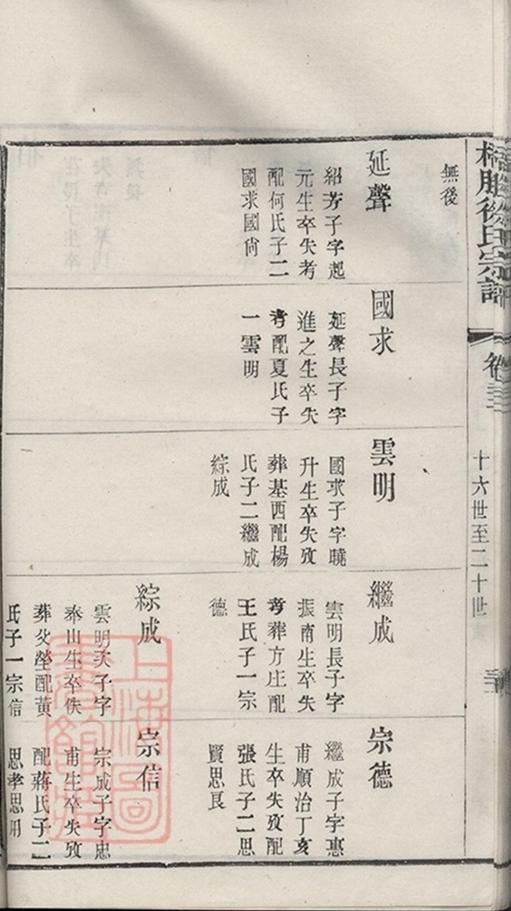 徐氏宗譜
卷三
十六世至二十世
無後
延聲
紹芳子字起
元生卒失考
配何氏子二
國求國尙
國求
延聲長子字
進之生卒失
考配夏氏子
一雲明
雲明
國求子字曉
升生卒失攷
葬基西配楊
氏子二繼成
綜成
繼成
雲明長子字
振南生卒失
考葬方庄配
王氏子一宗
德
綜成
雲明次子字
奉山生卒佚
葬父塋配黃
氏子一宗信
宗德
繼成子字惠
甫順治丁亥
生卒失攷配
張氏子二思
賢思良
宗信
宗成子字忠
甫生卒失攷
配蔣氏子二
思孝思用